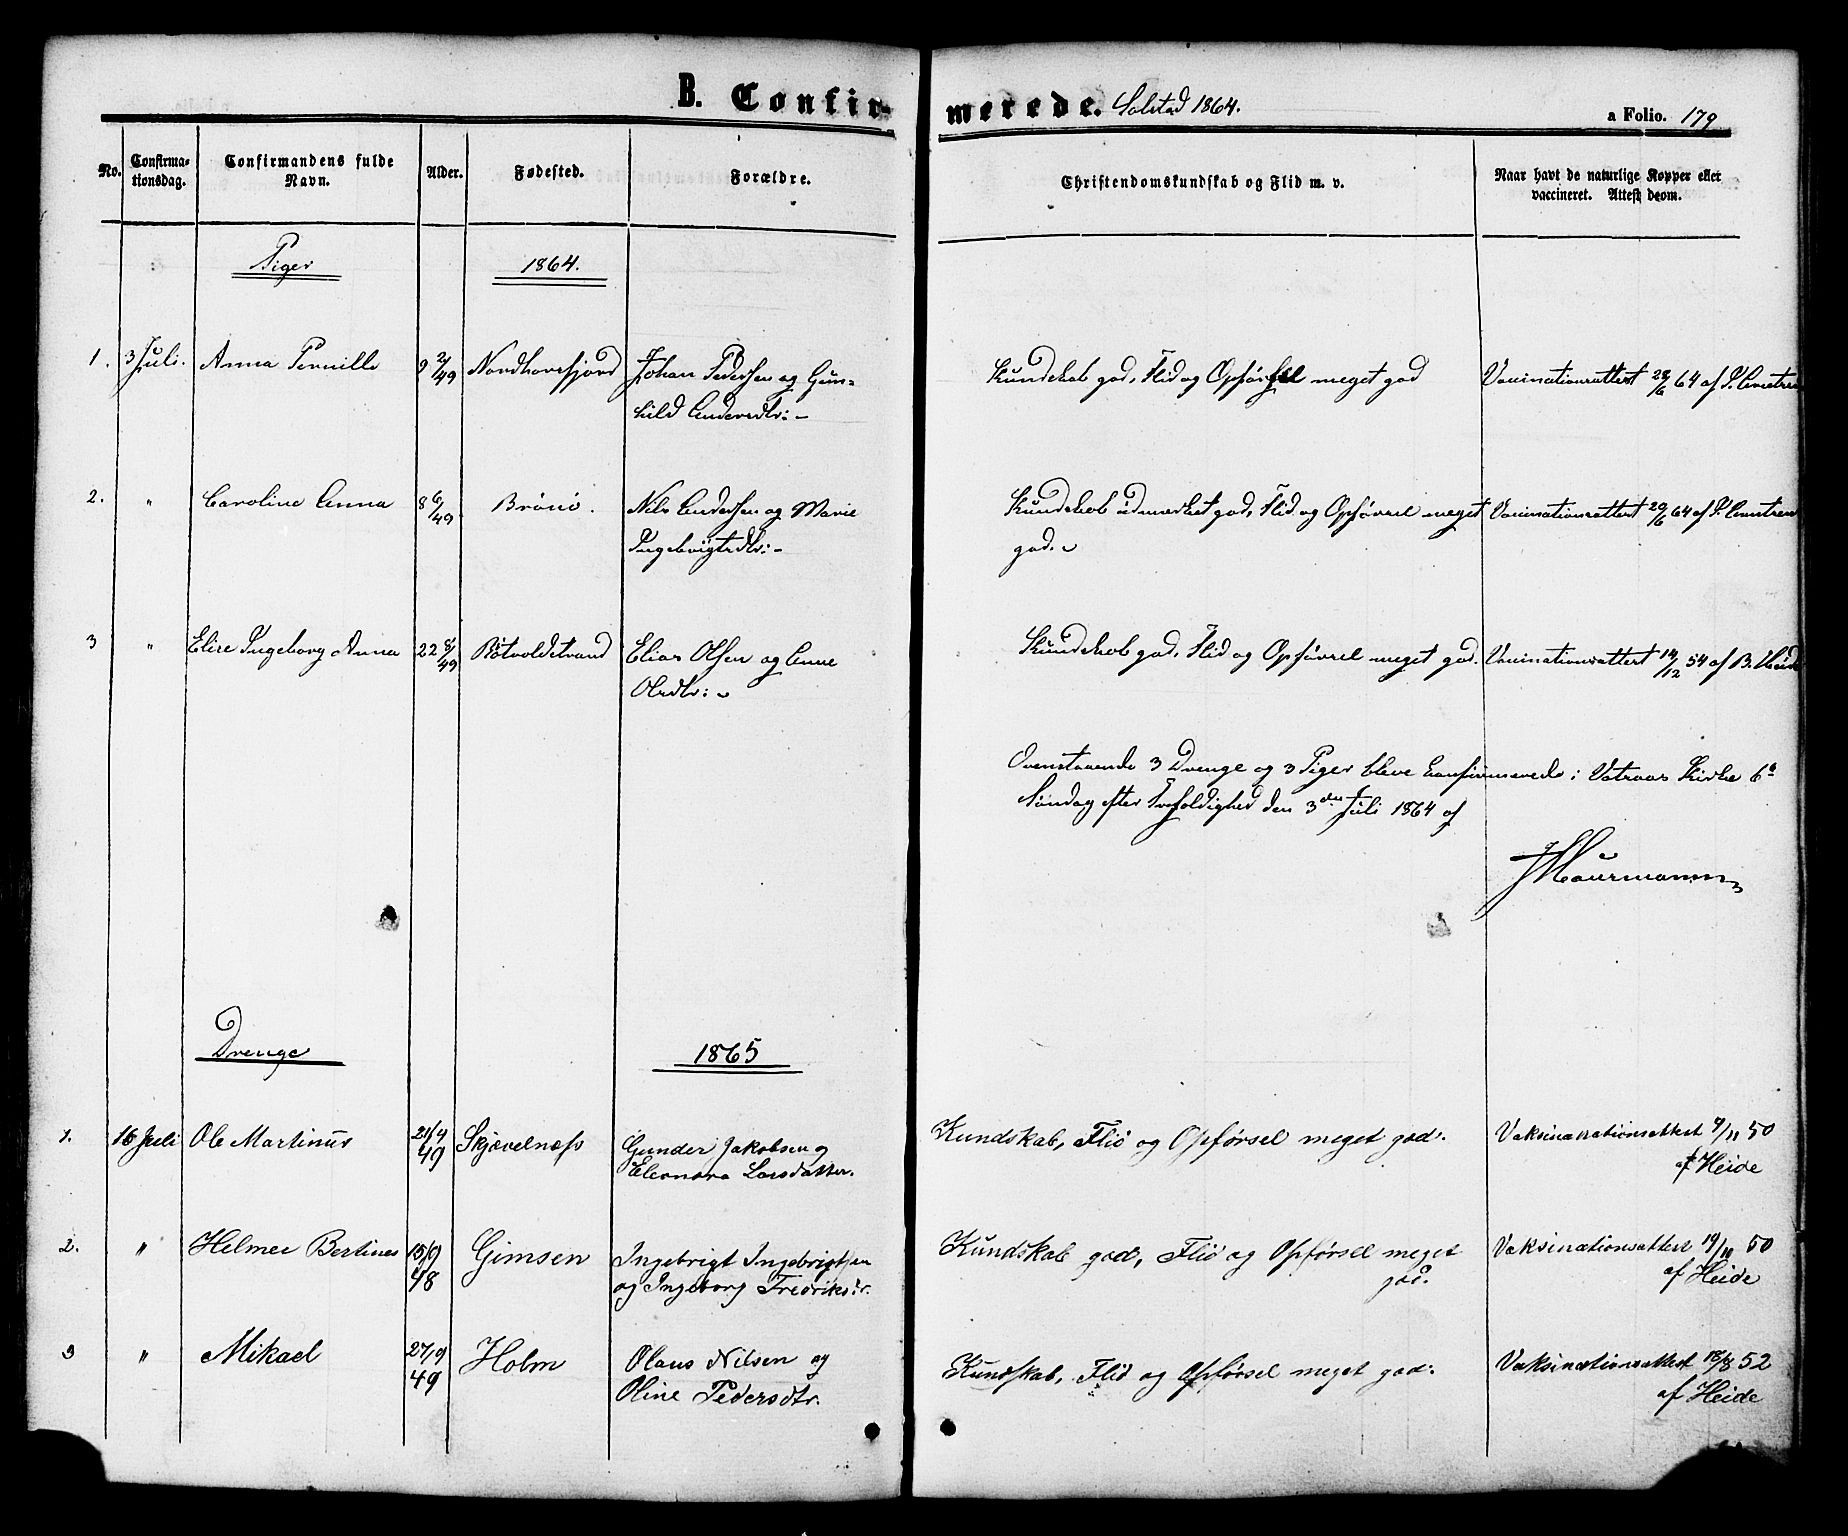 B. Confirmerede. Solstad 1864. a Folio. 179
No. Confirmationsdag. Confirmandens fulde Navn. Alder. Fødested. Forældre. Christendomskundskab og Flid m. v. Naar havt de naturlige Kopper eller vaccineret. Attest deom.
Piger 1864.
1. 3 Juli. Anna Pernille 9 2/49 Johan Pedersen og Gun- Kundskab god, Flid og Opførsel meget god Vaccinationsattest 28/6 64 af
hild Andersdtr:
2. " Caroline Anna 8 6/49 Brønø. Nils Andersen og Marie Kundskab udmærket god, Flid og Opførsel meget Vaccinationsattest 29/6 64 af
Ingebrigtsdtr: god.
3 " Elise Ingeborg Anna 22 8/49 Bøtvoldstrand Elias Olsen og Anne Kundskab god, Flid og Opførsel meget god. Vaccinationsattest 14/12 54 af B. Heide
Olsdtr:
Ovenstaaende 3 Drenge og 3 Piger bleve confirmerede i Vatraas Kirke 6te
Søndag efter Trefoldighed den 3die Juli 1864 af
Drenge 1865
1. 16 Juli Ole Martinus 21/4 49 Skjævelnæss Gunder Jakobsen og Kundskab, Flid og Opførsel meget god. Vaksinationsattest 9/11 50
Eleonora Larsdatter. af Heide
2. " Helmer Bertines 15/9 48 Gimsen Ingebrigt Ingebrigtsen Kundskab god, Flid og Opførsel meget Vaksinationsattest 19/11 50
og Ingeborg Fredriksdr. god. af Heide
3 " Mikael 27/9 49 Holm Olaus Nilsen og Kundskab, Flid og Opførsel meget god. Vaksinationsattest 18/8 52
Oline Pedersdtr. af Heide